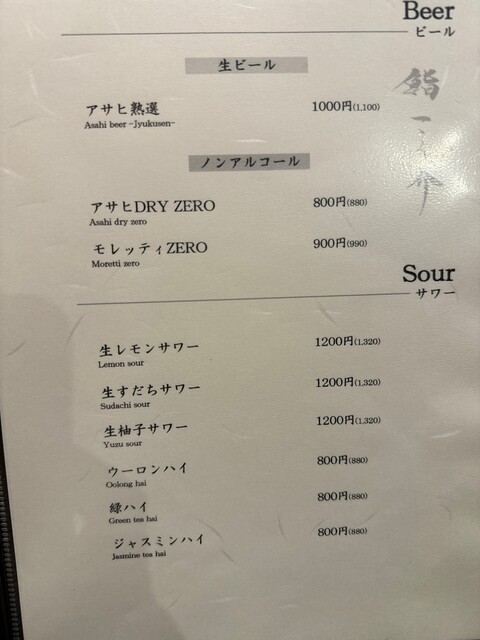 Beer
ビール
生ビール
アサヒ熟選 1000円(1,100)
Asahi beer -Jyukusen-
ノンアルコール
アサヒDRY ZERO 800円(880)
Asahi dry zero
モレッティZERO 900円(990)
Moretti zero
Sour
サワー
生レモンサワー 1200円(1,320)
Lemon sour
生すだちサワー 1200円(1,320)
Sudachi sour
生柚子サワー 1200円(1,320)
Yuzu sour
ウーロンハイ 800円(880)
Oolong hai
緑ハイ 800円(880)
Green tea hai
ジャスミンハイ 800円(880)
Jasmine tea hai